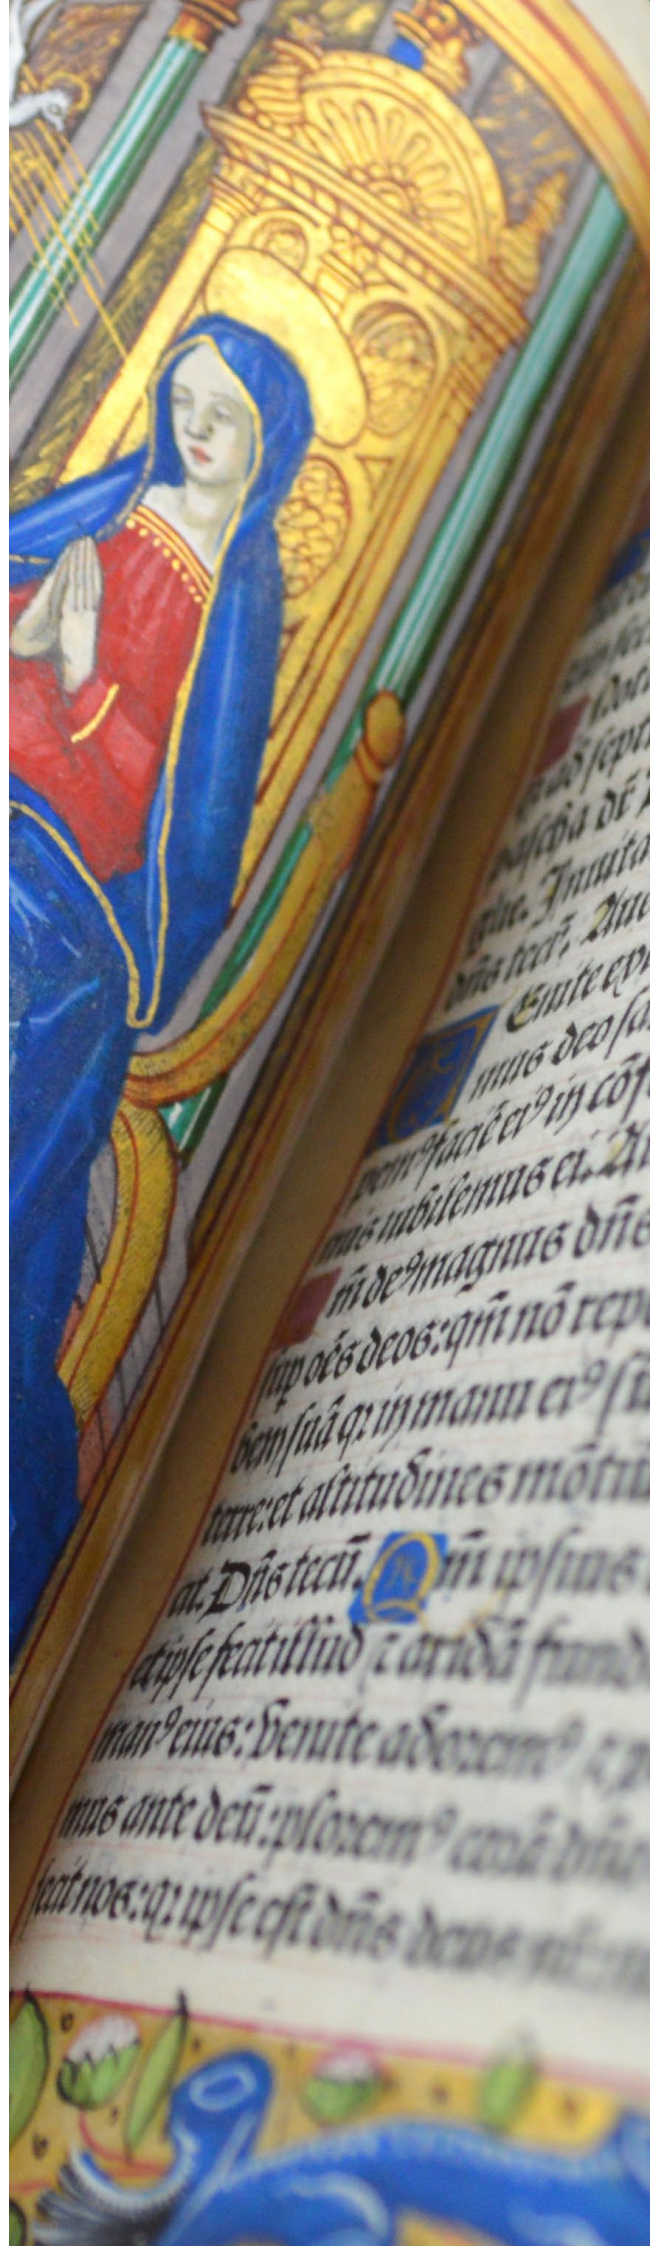 ad sept
pascha dr̄
Inuita
dn̄s tecū. Aue
Enite exu
mus deo sa
facie ei⁹ in cōf
mus iubilemus ei. Au
m̄ de⁹ magnus dn̄s
sup oēs deos: qm̄ nō repe
bem suā qꝛ in manu ei⁹ su
terre: et altitudines mōtiū
cit. Dn̄s tecū. Qm̄ ipsius
et ipse fecit illud ⁊ aridā fund
man⁹ eius: Venite adorem⁹ ⁊ p
mus ante deū: plorem⁹ corā dn̄o
fecit nos: qꝛ ipse est dn̄s deus nr̄: